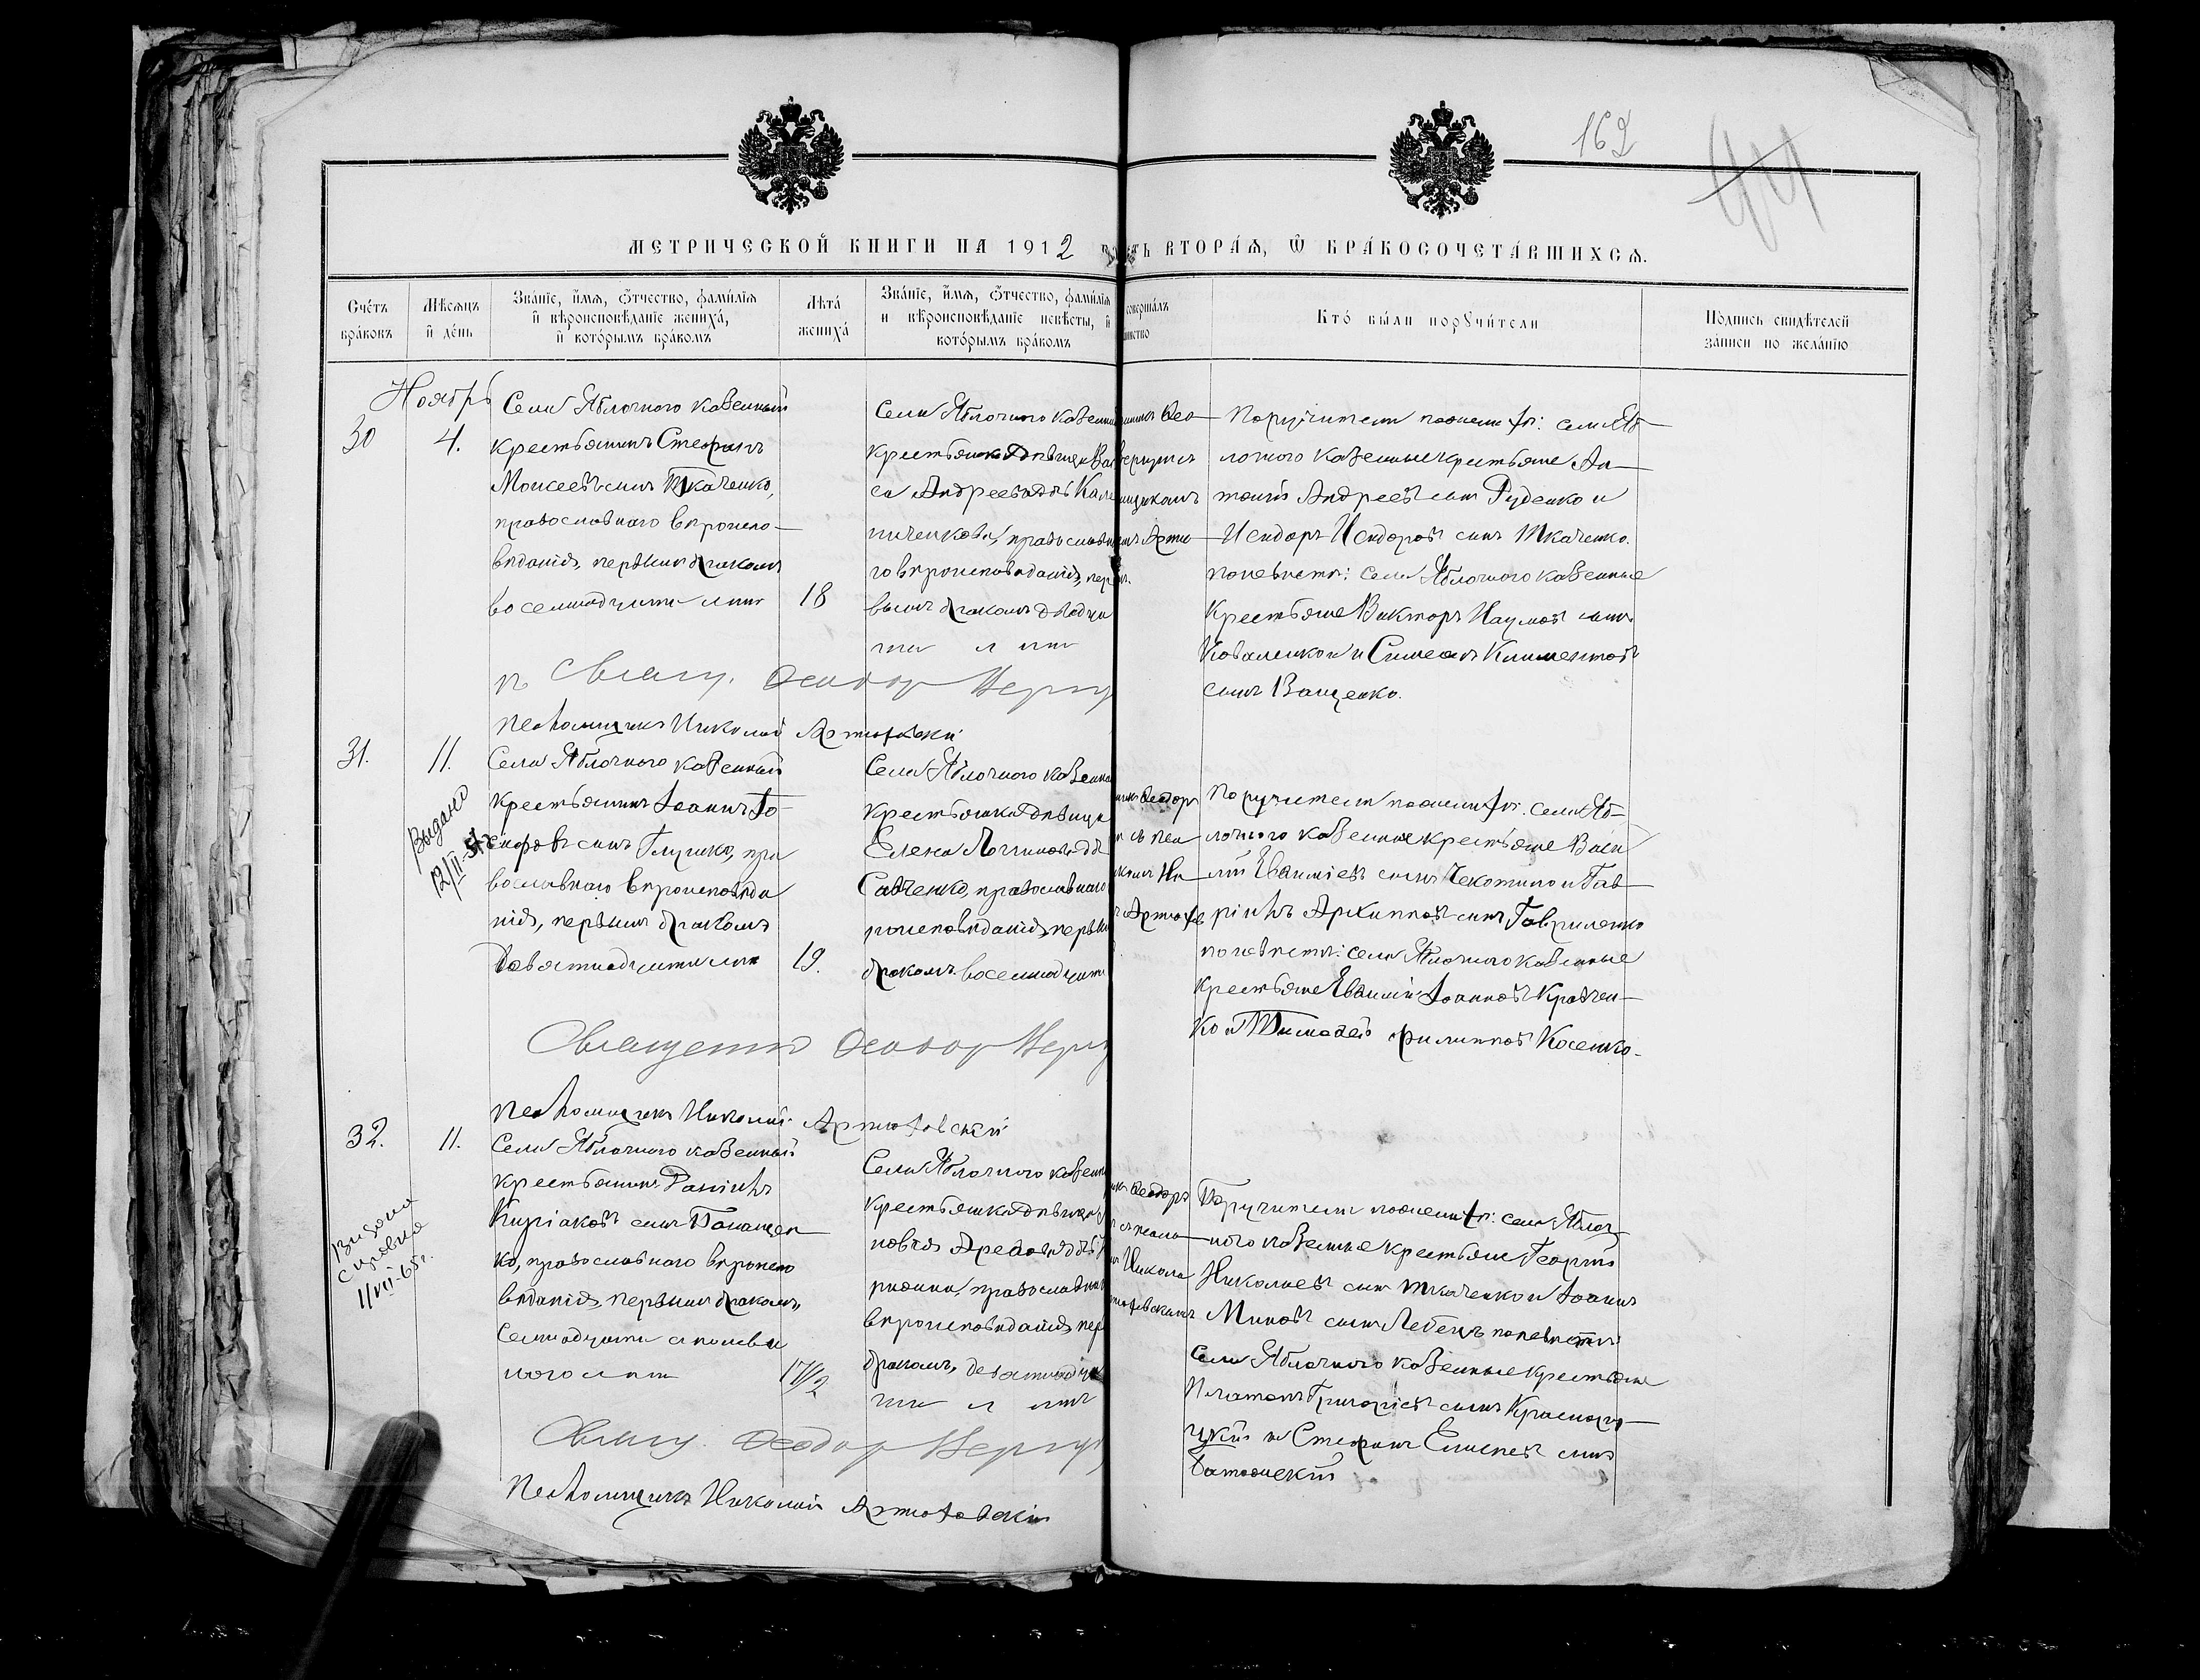 162
44
МЕТРИЧЕСКОЙ КНИГИ НА 1912
ВТОРАѦ, Ѿ БРАКОСОЧЕТАВШИХСѦ.
Счетъ браковъ
Мѣсяцъ и день
Званіе, имѧ, отчество, фамилія
и вѣроисповѣданіе жениха,
и которымъ бракомъ
Лѣта жениха
Званіе, имѧ, отчество, фамилія
и вѣроисповѣданіе невѣсты, и
которымъ бракомъ
совершалъ
Кто были поручители
Подпись свидѣтелей
записи по желанію
Ноябрь
30
4.
Села Яблочного казенный
крестьянинъ Стефанъ
Моисеевъ сынъ Ткаченко,
православнаго вѣроиспо-
вѣданія, первымъ бракомъ
восемнадцати лѣтъ
18
Села Яблочного казенн
крестьянка дѣвица
са Андреева дчь
ниченкова, православн
го вѣроисповѣданія, пер
вымъ бракомъ двадца
ти лѣтъ
Поручители по женихѣ: села Яб-
лочного казенные крестьяне Ан-
тоній Андреевъ сынъ Руденко и
Исидоръ Исидоровъ сынъ Ткаченко.
по невѣстѣ: села Яблочного казенные
крестьяне Викторъ Наумовъ сынъ
Коваленков и Симеонъ Климентовъ
сынъ Ващенко.
Свящ. Ѳеодор
Псаломщикъ Николай Артюховскій
31.
11.
Выдано
12/II-
Села Яблочного казенный
крестьянинъ Іоаннъ
сынъ Глушко, пра
вославнаго вѣроисповѣда
нія, первымъ бракомъ
девятнадцати лѣтъ
19.
Села Яблочного казенн
крестьянка дѣвица
Елена Логинова дч
Савченко, православнаго
роисповѣданія, первы
бракомъ восемнадцати
Поручители по женихѣ: села Яб-
лочного казенные крестьяне Васи
лій Евѳиміевъ сынъ Чекотино и Гав-
ріилъ Архиповъ сынъ Гавриленко
по невѣстѣ: села Яблочного казенные
крестьяне Евѳимій Іоанновъ Кравчен-
ко и Тимоѳей Филиповъ Косенко.
Священник Ѳеодор
Псаломщикъ Николай Артюховскій
32.
11.
Видана
справка
1/VII-65г.
Села Яблочного казенный
крестьянинъ Даніилъ
Киріаковъ сынъ Панащен
ко, православнаго вѣроиспо
вѣданія, первымъ бракомъ,
семнадцати с полови
ною лѣтъ
17 1/2
Села Яблочного казенн
крестьянка дѣвица
православнаго
вѣроисповѣданія, пер
бракомъ, девятнадца
ти лѣтъ
Поручители по женихѣ: села Яблоч-
ного казенные крестьяне Георгій
Николаевъ сынъ Ткаченко и Іоаннъ
Миновъ сынъ Лебецъ по невѣстѣ:
Села Яблочного казенные крестьяне
Платонъ Григоріевъ сынъ Краснору-
цкій и Стефанъ Елисеевъ сынъ
Свящ. Ѳеодор
Псаломщикъ Николай Артюховскій